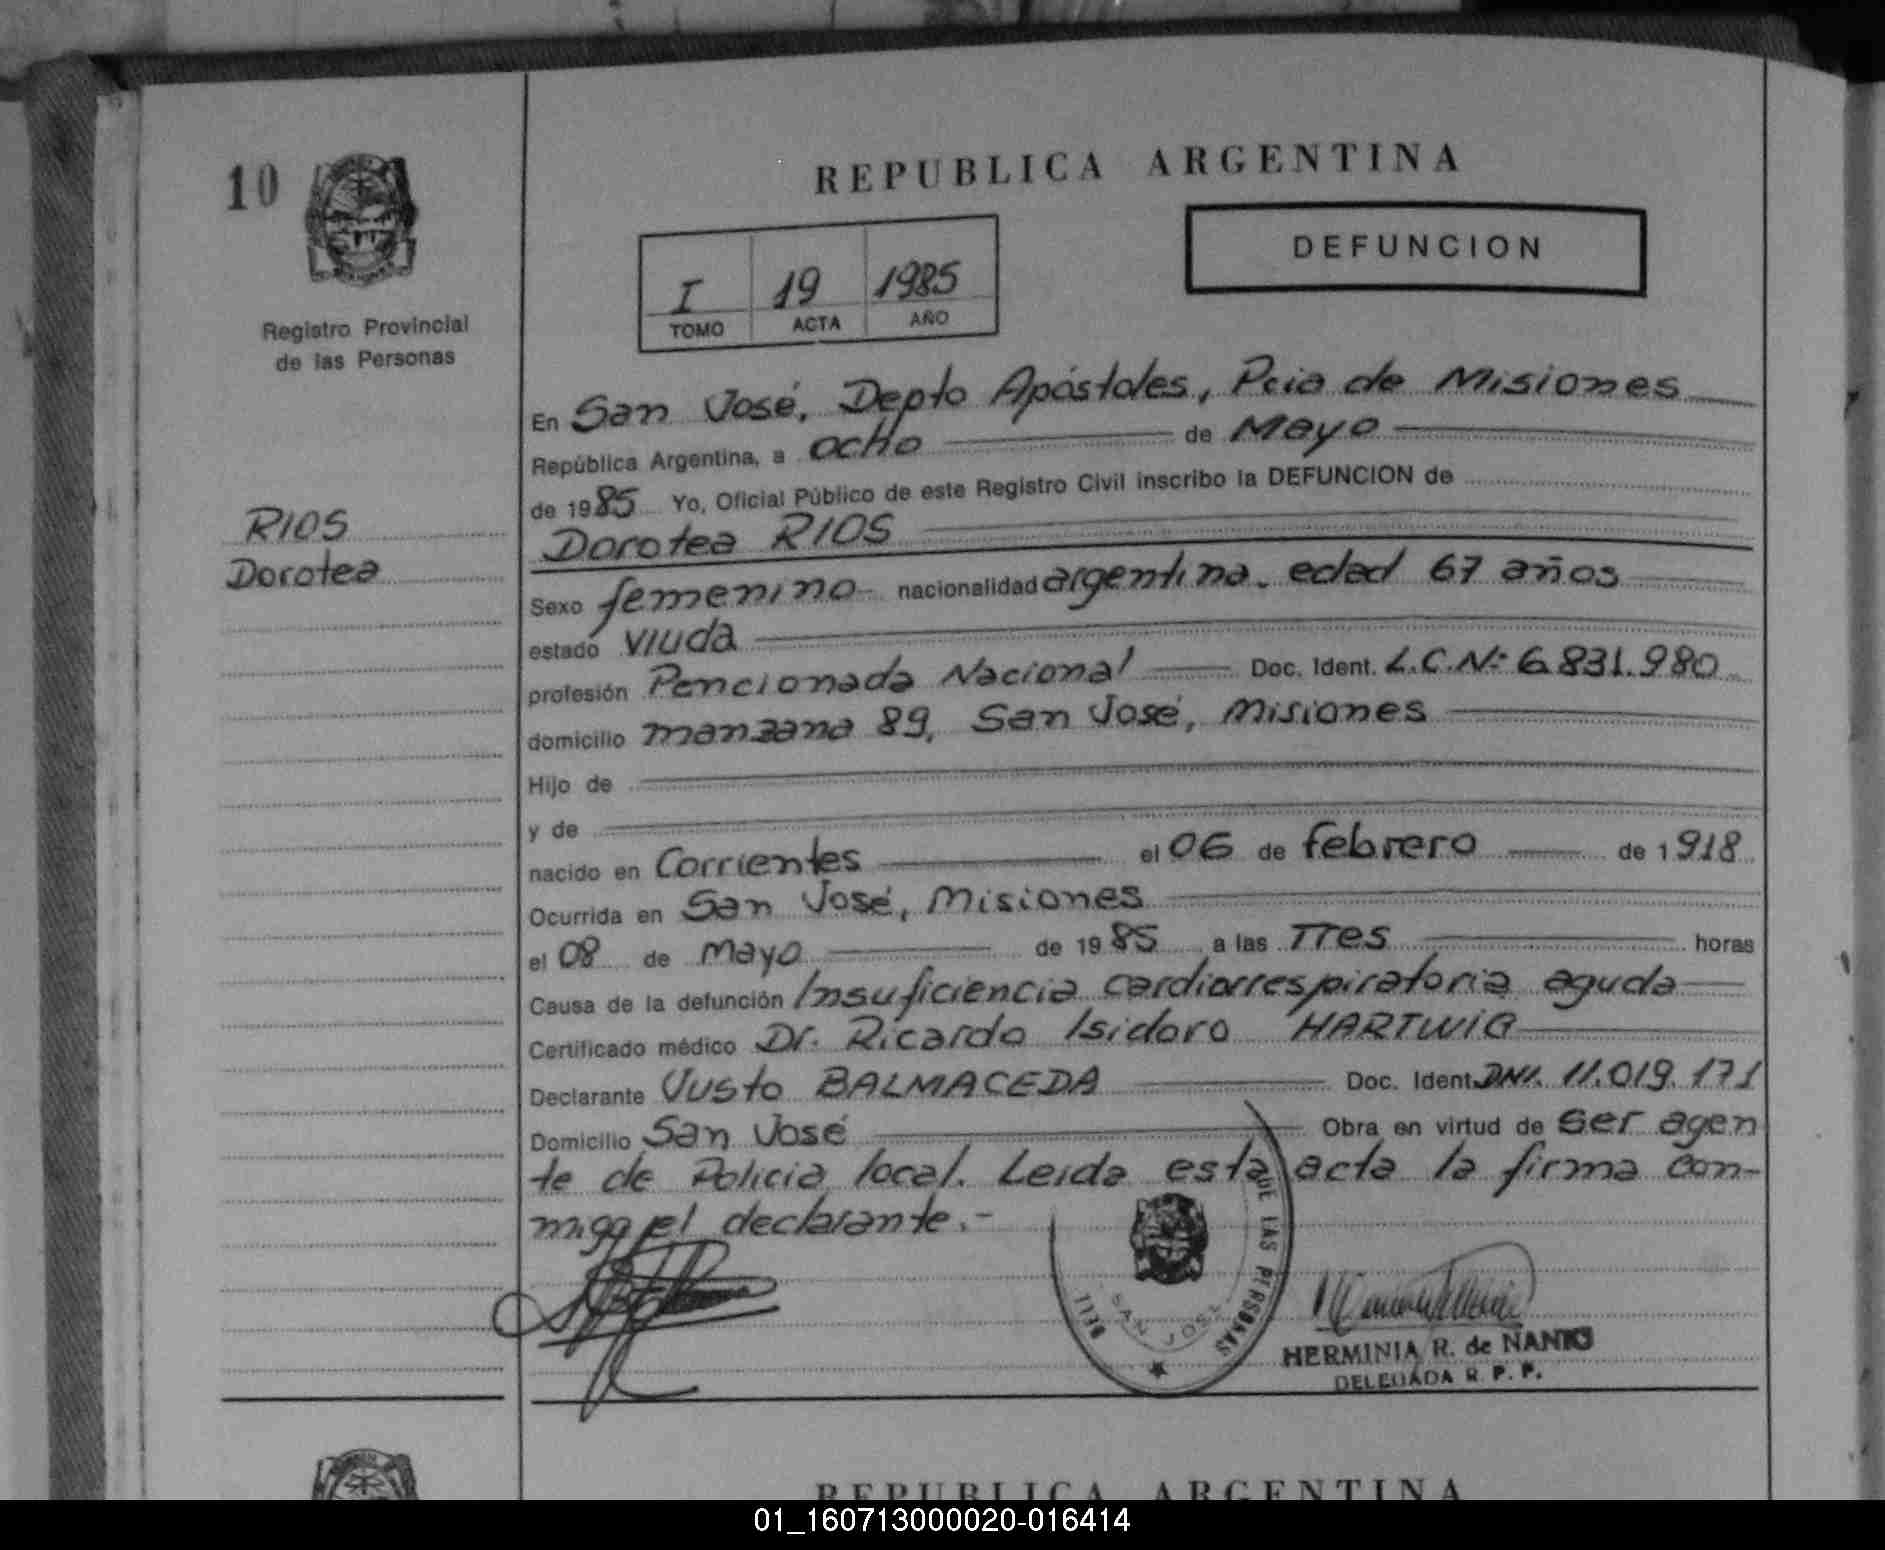 10
REPUBLICA ARGENTINA
DEFUNCION
I 19 1985
TOMO ACTA AÑO
Registro Provincial
de las Personas
RIOS
Dorotea
En San José, Depto Apóstoles, Pcia de Misiones
República Argentina, a ocho de Mayo
de 1985 Yo, Oficial Público de este Registro Civil inscribo la DEFUNCION de
Dorotea RIOS
Sexo femenino nacionalidad argentina. edad 67 años
estado viuda
profesión Pencionada Nacional Doc. Ident. L.C.Nº 6.831.980
domicilio manzana 89, San José, Misiones
Hijo de
y de
nacido en Corrientes el 06 de febrero de 1918
Ocurrida en San José, Misiones
el 08 de mayo de 1985 a las Tres horas
Causa de la defunción Insuficiencia cardiorrespiratoria aguda
Certificado médico Dr. Ricardo Isidoro HARTWIG
Declarante Justo BALMACEDA Doc. Ident. DNI. 11.019.171
Domicilio San José Obra en virtud de ser agen
te de Policia local. Leida esta acta la firma con-
migo el declarante.-
DE LAS PERSONAS
SAN JOSE
HERMINIA R. de NANIO
DELEGADA R. P. P.
REPUBLICA ARGENTINA
01_160713000020-016414